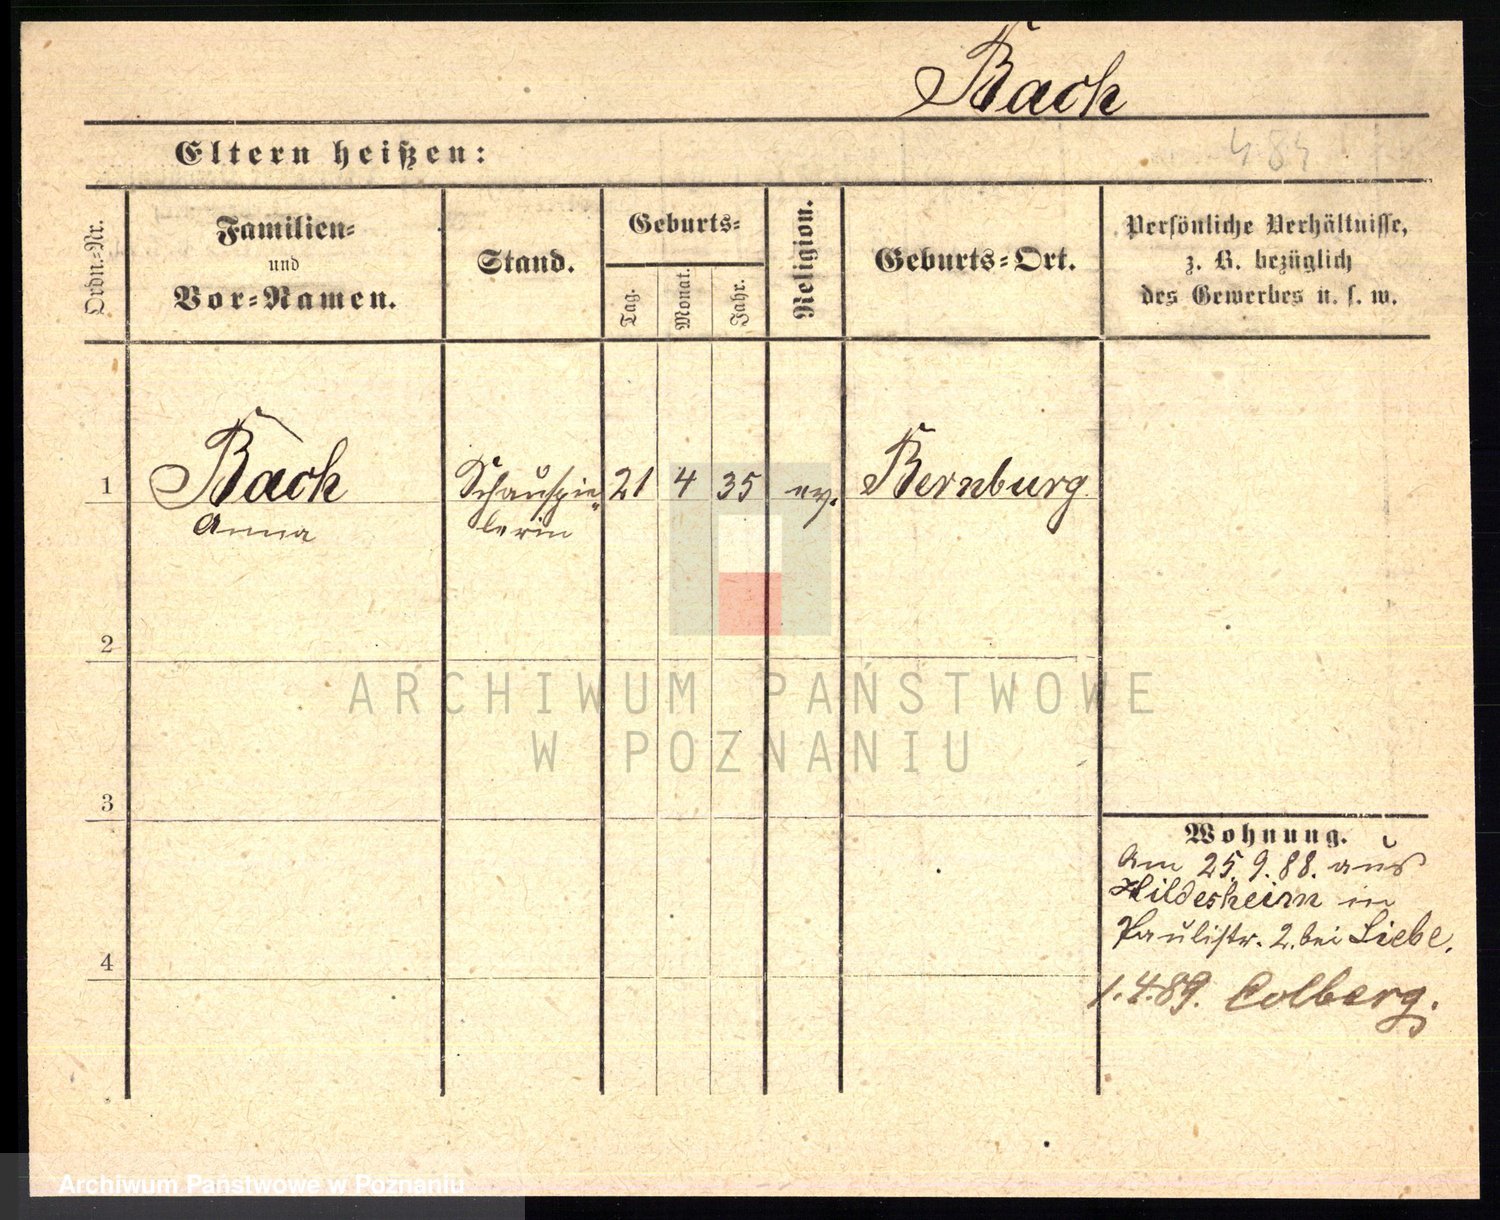 Bach
Eltern heißen:
484
Ordn.-Nr.
Familien-
und
Vor-Namen.
Stand.
Geburts-
Tag.
Monat.
Jahr.
Religion.
Geburts-Ort.
Persönliche Verhältnisse,
z. B. bezüglich
des Gewerbes u. s. w.
1
Bach
Anna
Schauspie-
lerin
21
4
35
ev.
Bernburg
2
3
4
Wohnung.
Am 25. 9. 88. aus
Hildesheim in
Paulistr. 2. bei Liebe.
1. 4. 89. Colberg.
ARCHIWUM PAŃSTWOWE
W POZNANIU
Archiwum Państwowe w Poznaniu